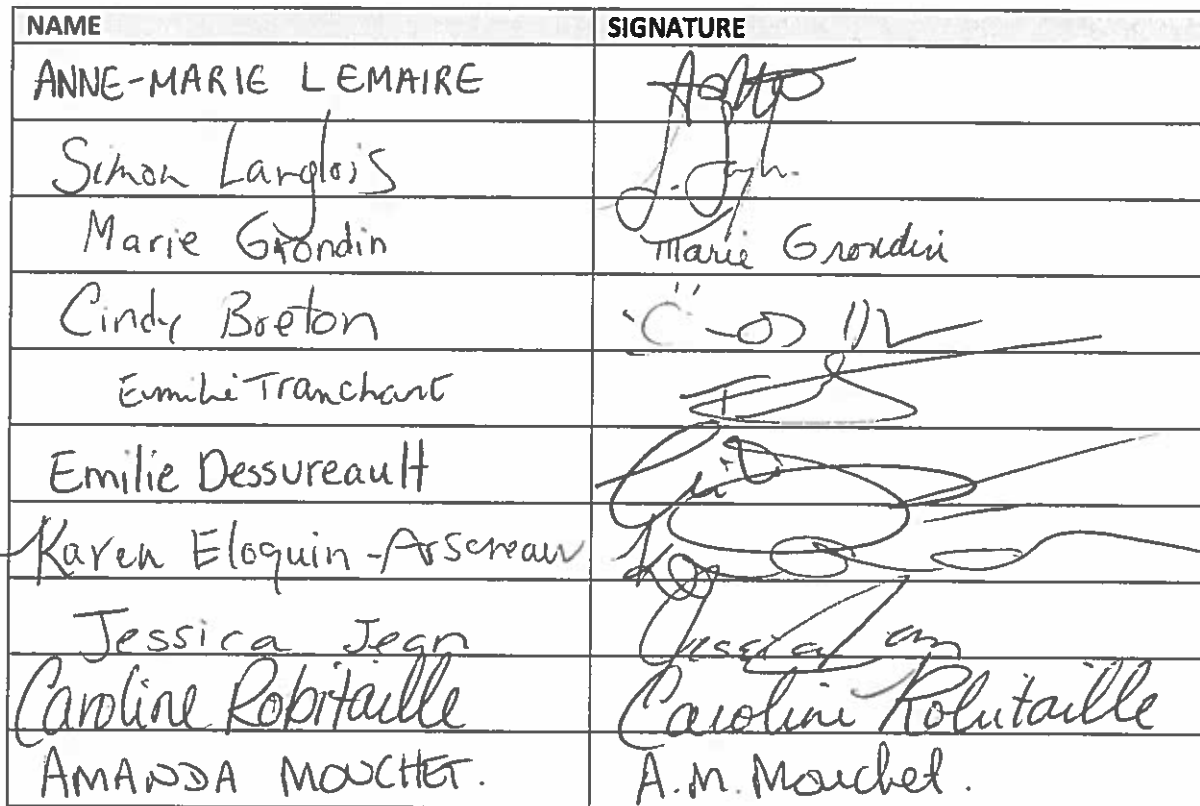 NAME SIGNATURE
ANNE-MARIE LEMAIRE
Simon Langlois
Marie Grondin Marie Grondin
Cindy Breton
Emilie Tranchant
Emilie Dessureault
Karen Eloquin-Arseneau
Jessica Jean Jessica Jean
Caroline Robitaille Caroline Robitaille
AMANDA MOUCHET. A.M. Mouchet.